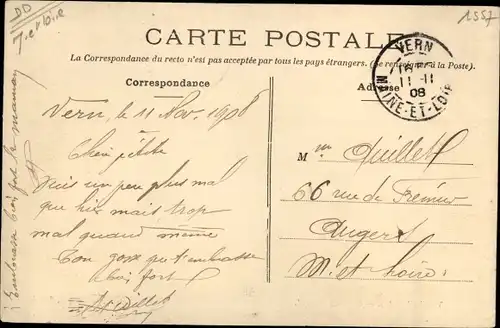 DD
M et Loire
1557
CARTE POSTALE
La Correspondance du recto n'est pas acceptée par tous les pays étrangers. (Se renseigner à la Poste).
Correspondance
Adresse
VERN
11-11
08
MAINE-ET-LOIRE
Vern, le 11 Nov 1908
Chère petite
Suis un peu plus mal
que hier mais trop
mal quand même
Ton gosse qui t'embrasse
bien fort
Embrasse bien fort la maman
M
Quillet
66 rue de
Angers
M. et Loire